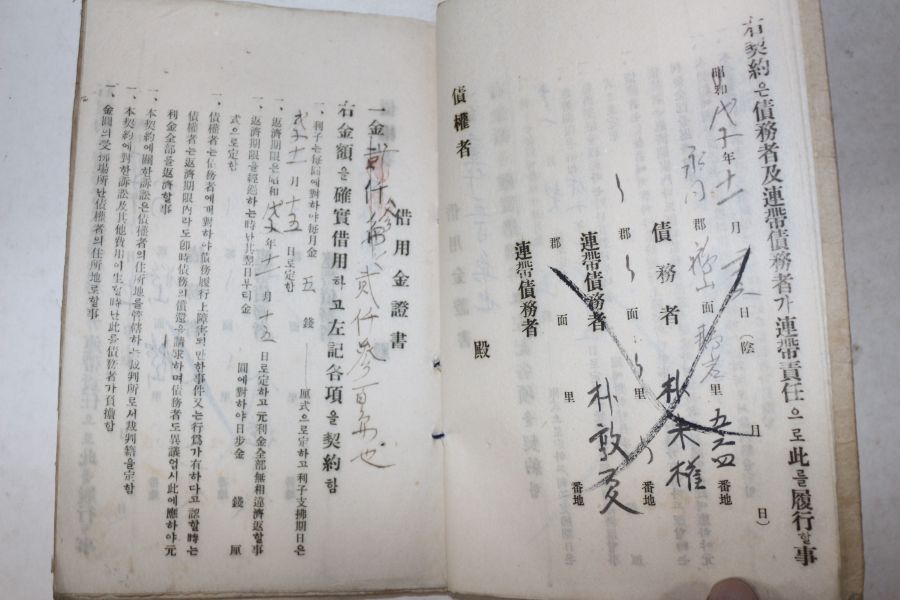 右契約은債務者及連帶債務者가連帶責任으로此를履行할事
昭和戊子年十一月 日(陰 月 日)
郡 山面 里 番地
債務者 朴 權
郡 面 里 番地
連帶債務者 朴敦
郡 面 里 番地
連帶債務者
債權者 殿
借用金證書
一金 貳仟參百 也
右金額을確實借用하고左記各項을契約함
一、利子는每圓에對하야每月金五錢 厘式으로定하고利子支拂期日은
戊子十一月十五日로定함
一、返濟期限은昭和 年十一月十五日로定하고元利金全部無相違濟返할事
一、返濟期限을經過하는時난翌日부터金 圓에對하야日步金 錢 厘
式으로定함
債權者는債務者에對하야債務履行上障害되난한事件又는行爲가有하다고認할時는
債權者는返濟期限內라도卽時債務의償還을請求하며債務者도異議업시此에應하야元
利金全部을返濟할事
一、本契約에關한訴訟은債權者의住所地를管轄하는裁判所로서裁判籍을定함
一、本契約에對한訴訟及其他費用이生할時난此을債務者가負擔함
一、金圓의受拂場所난債權者의住所地로할事